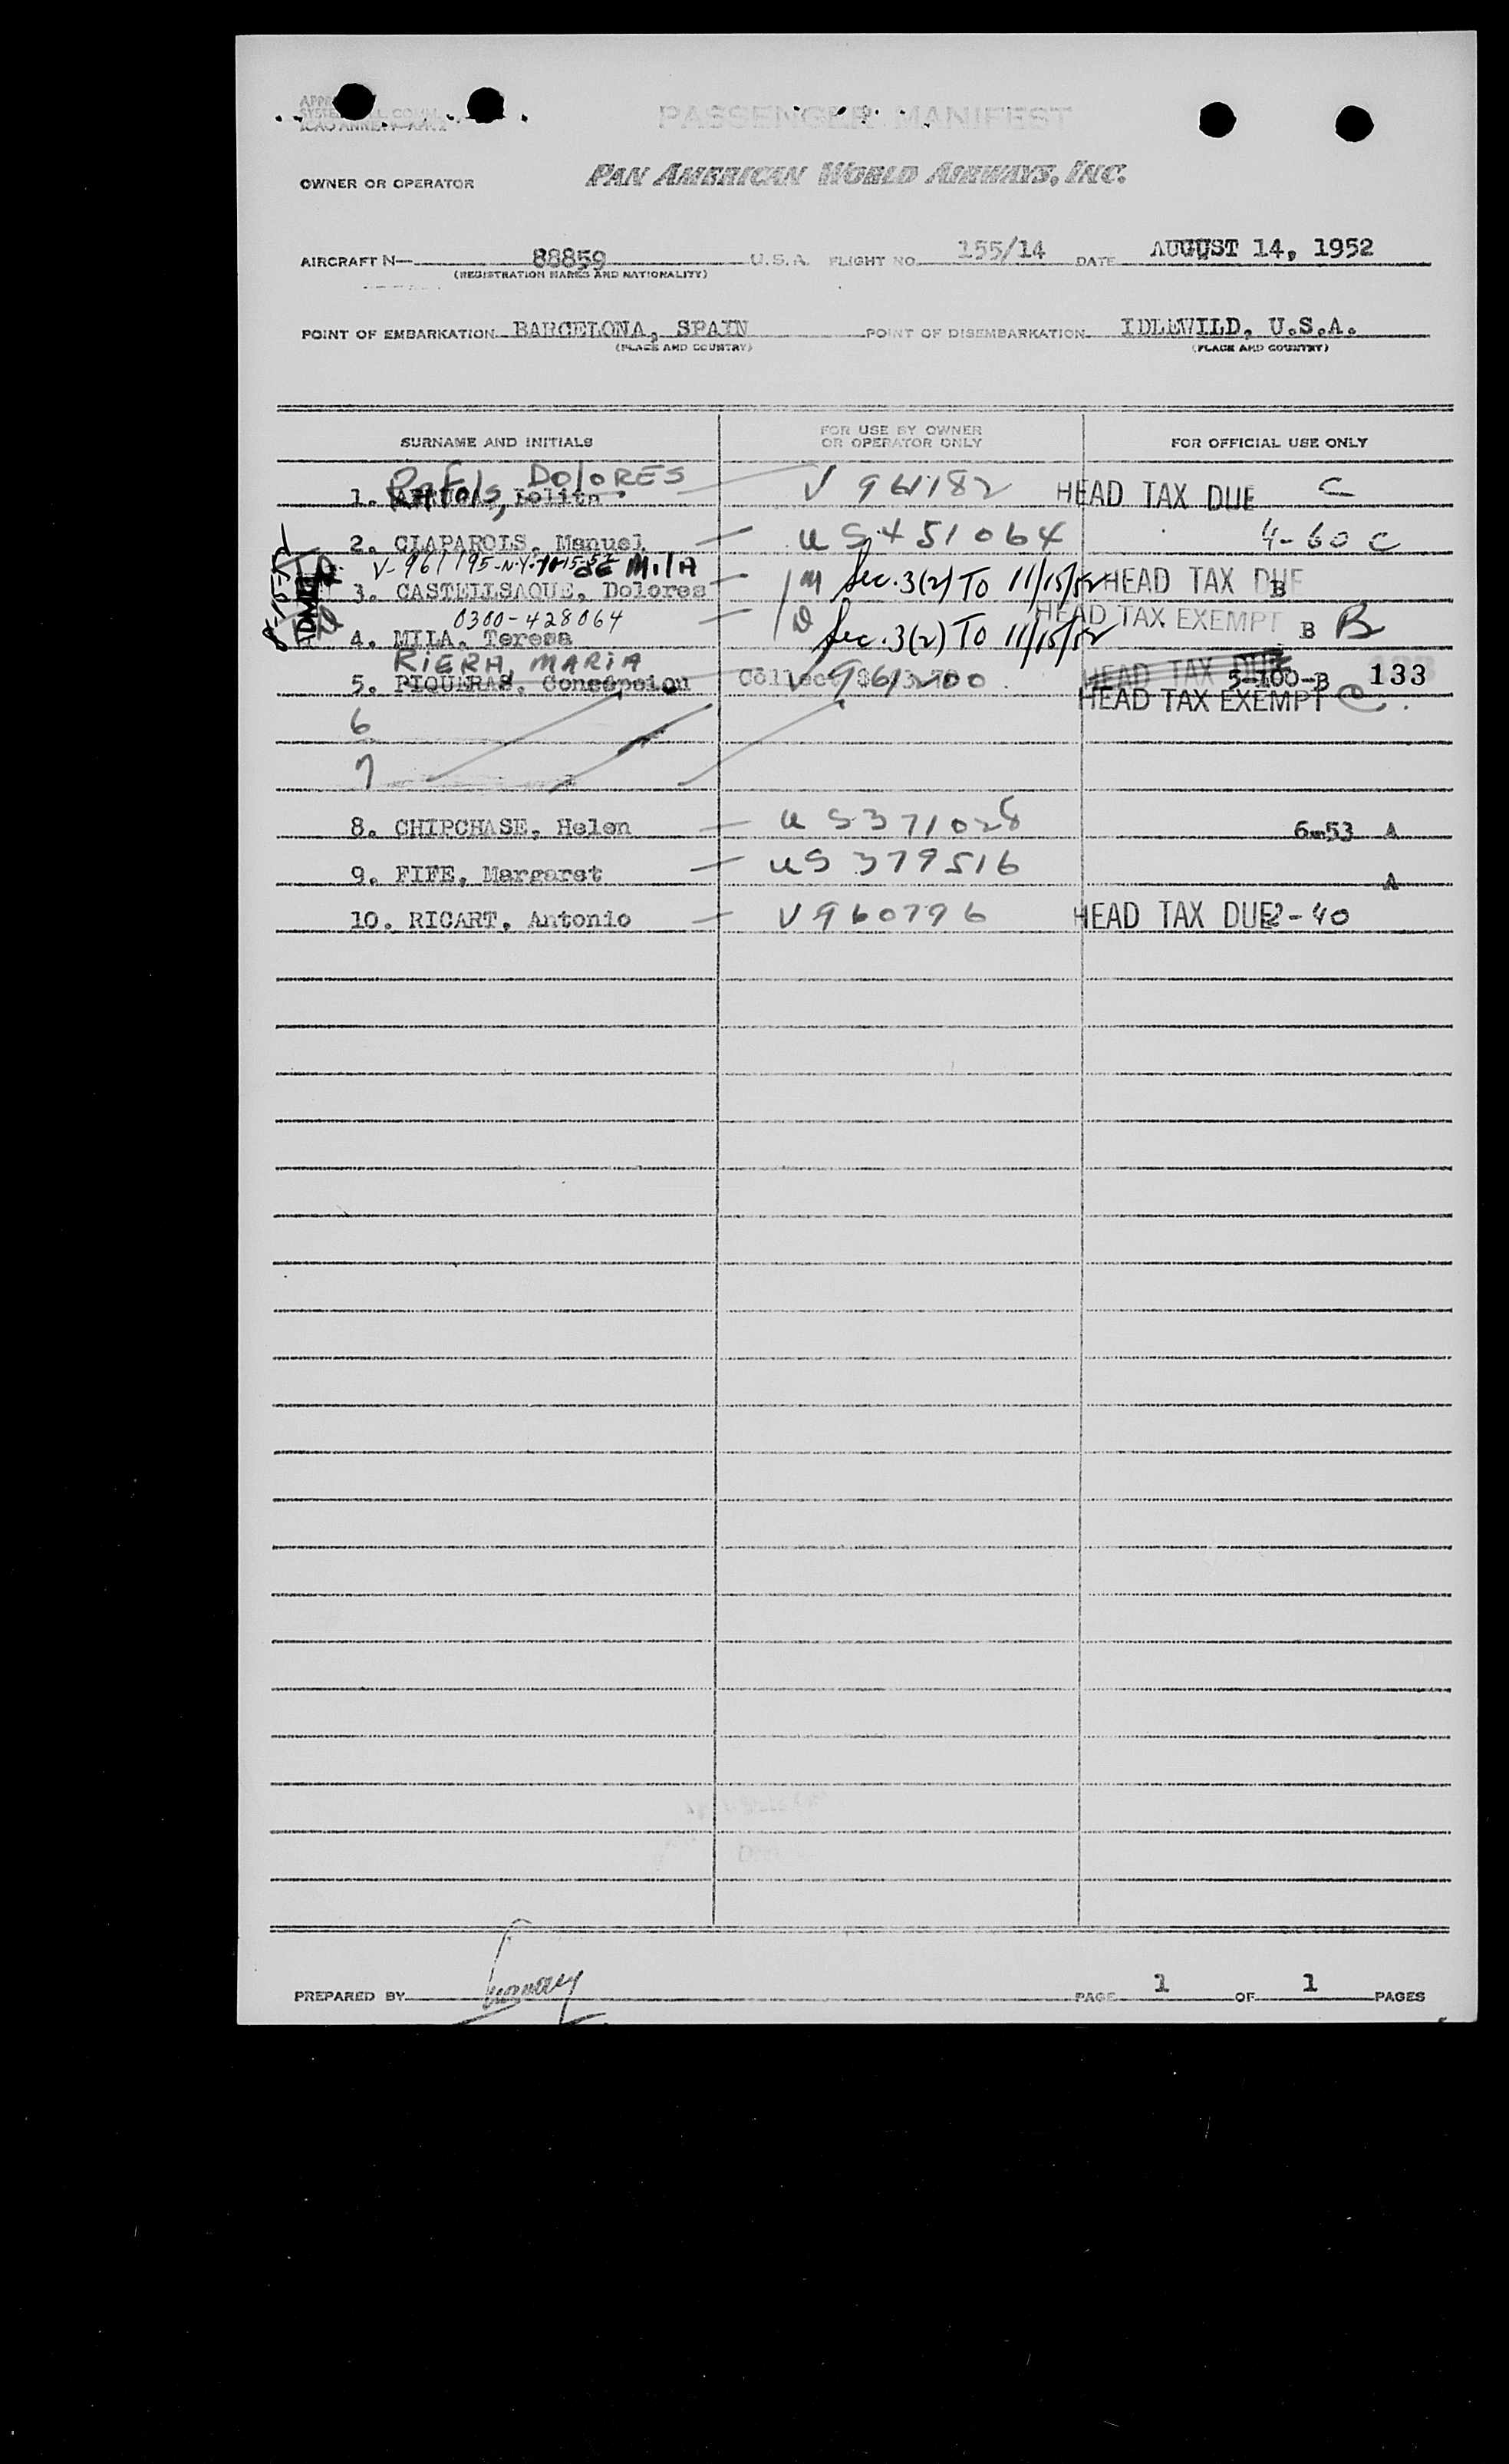 PASSENGER MANIFEST
OWNER OR OPERATOR PAN AMERICAN WORLD AIRWAYS, INC.
AIRCRAFT N— 88859 U.S.A. FLIGHT NO. 155/14 DATE AUGUST 14, 1952
(REGISTRATION MARKS AND NATIONALITY)
POINT OF EMBARKATION BARCELONA, SPAIN POINT OF DISEMBARKATION IDLEWILD, U.S.A.
(PLACE AND COUNTRY) (PLACE AND COUNTRY)
SURNAME AND INITIALS FOR USE BY OWNER OR OPERATOR ONLY FOR OFFICIAL USE ONLY
Rafols, DOLORES
1. Lolita V 961182 HEAD TAX DUE C
2. CLAPAROLS, Manuel US 451064 4-60 C
V-961195-N.Y. DE MILA
3. CASTELLSAQUE, Dolores M Sec. 3(2) TO 11/15/52 HEAD TAX DUE B
0300-428064 HEAD TAX EXEMPT
4. MILA, Teresa D Sec. 3(2) TO 11/15/52 B B
ADMIT
RIERA, MARIA
5. PIQUERAS, Concepcion Collect V 961200 HEAD TAX DUE 5-100-B 133
HEAD TAX EXEMPT C
6
7
8. CHIPCHASE, Helen US 371028 6-53 A
9. FIFE, Margaret US 379516 A
10. RICART, Antonio V 960796 HEAD TAX DUE 2-40
PREPARED BY PAGE 1 OF 1 PAGES